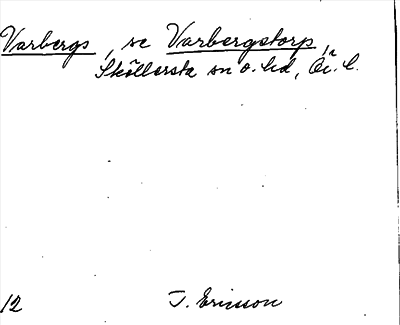 Varbergs, se Varbergstorp,
Sköllersta sn o. hd, Ör. l.
12 J. Ericsson